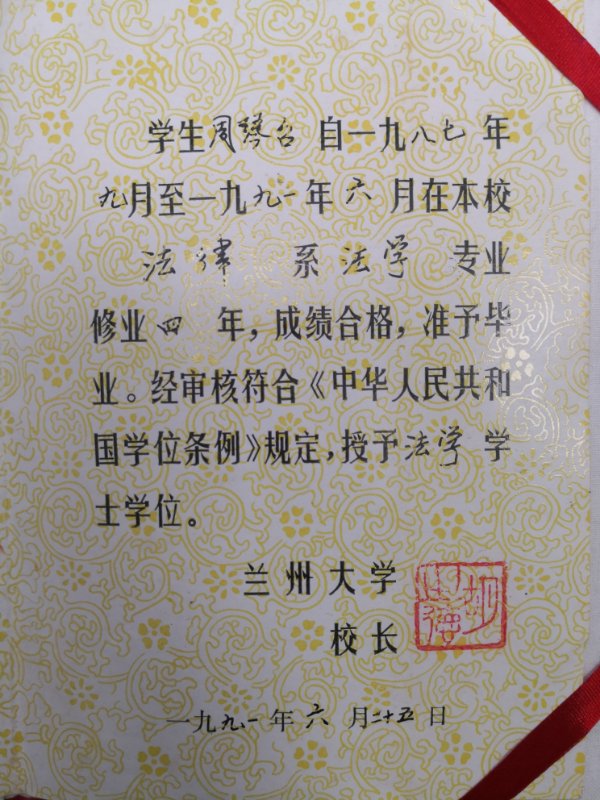 学生周琴台 自一九八七年
九月至一九九一年六月在本校
法律 系法学 专业
修业四 年，成绩合格，准予毕
业。经审核符合《中华人民共和
国学位条例》规定，授予法学 学
士学位。
兰州大学
校长
一九九一年六月二十五日